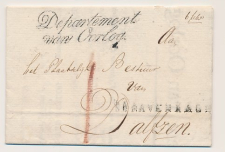 Departement
van Oorlog.
Aan
het Plaatselijk Bestuur
van
'S GRAVENHAGE
Dalfsen.